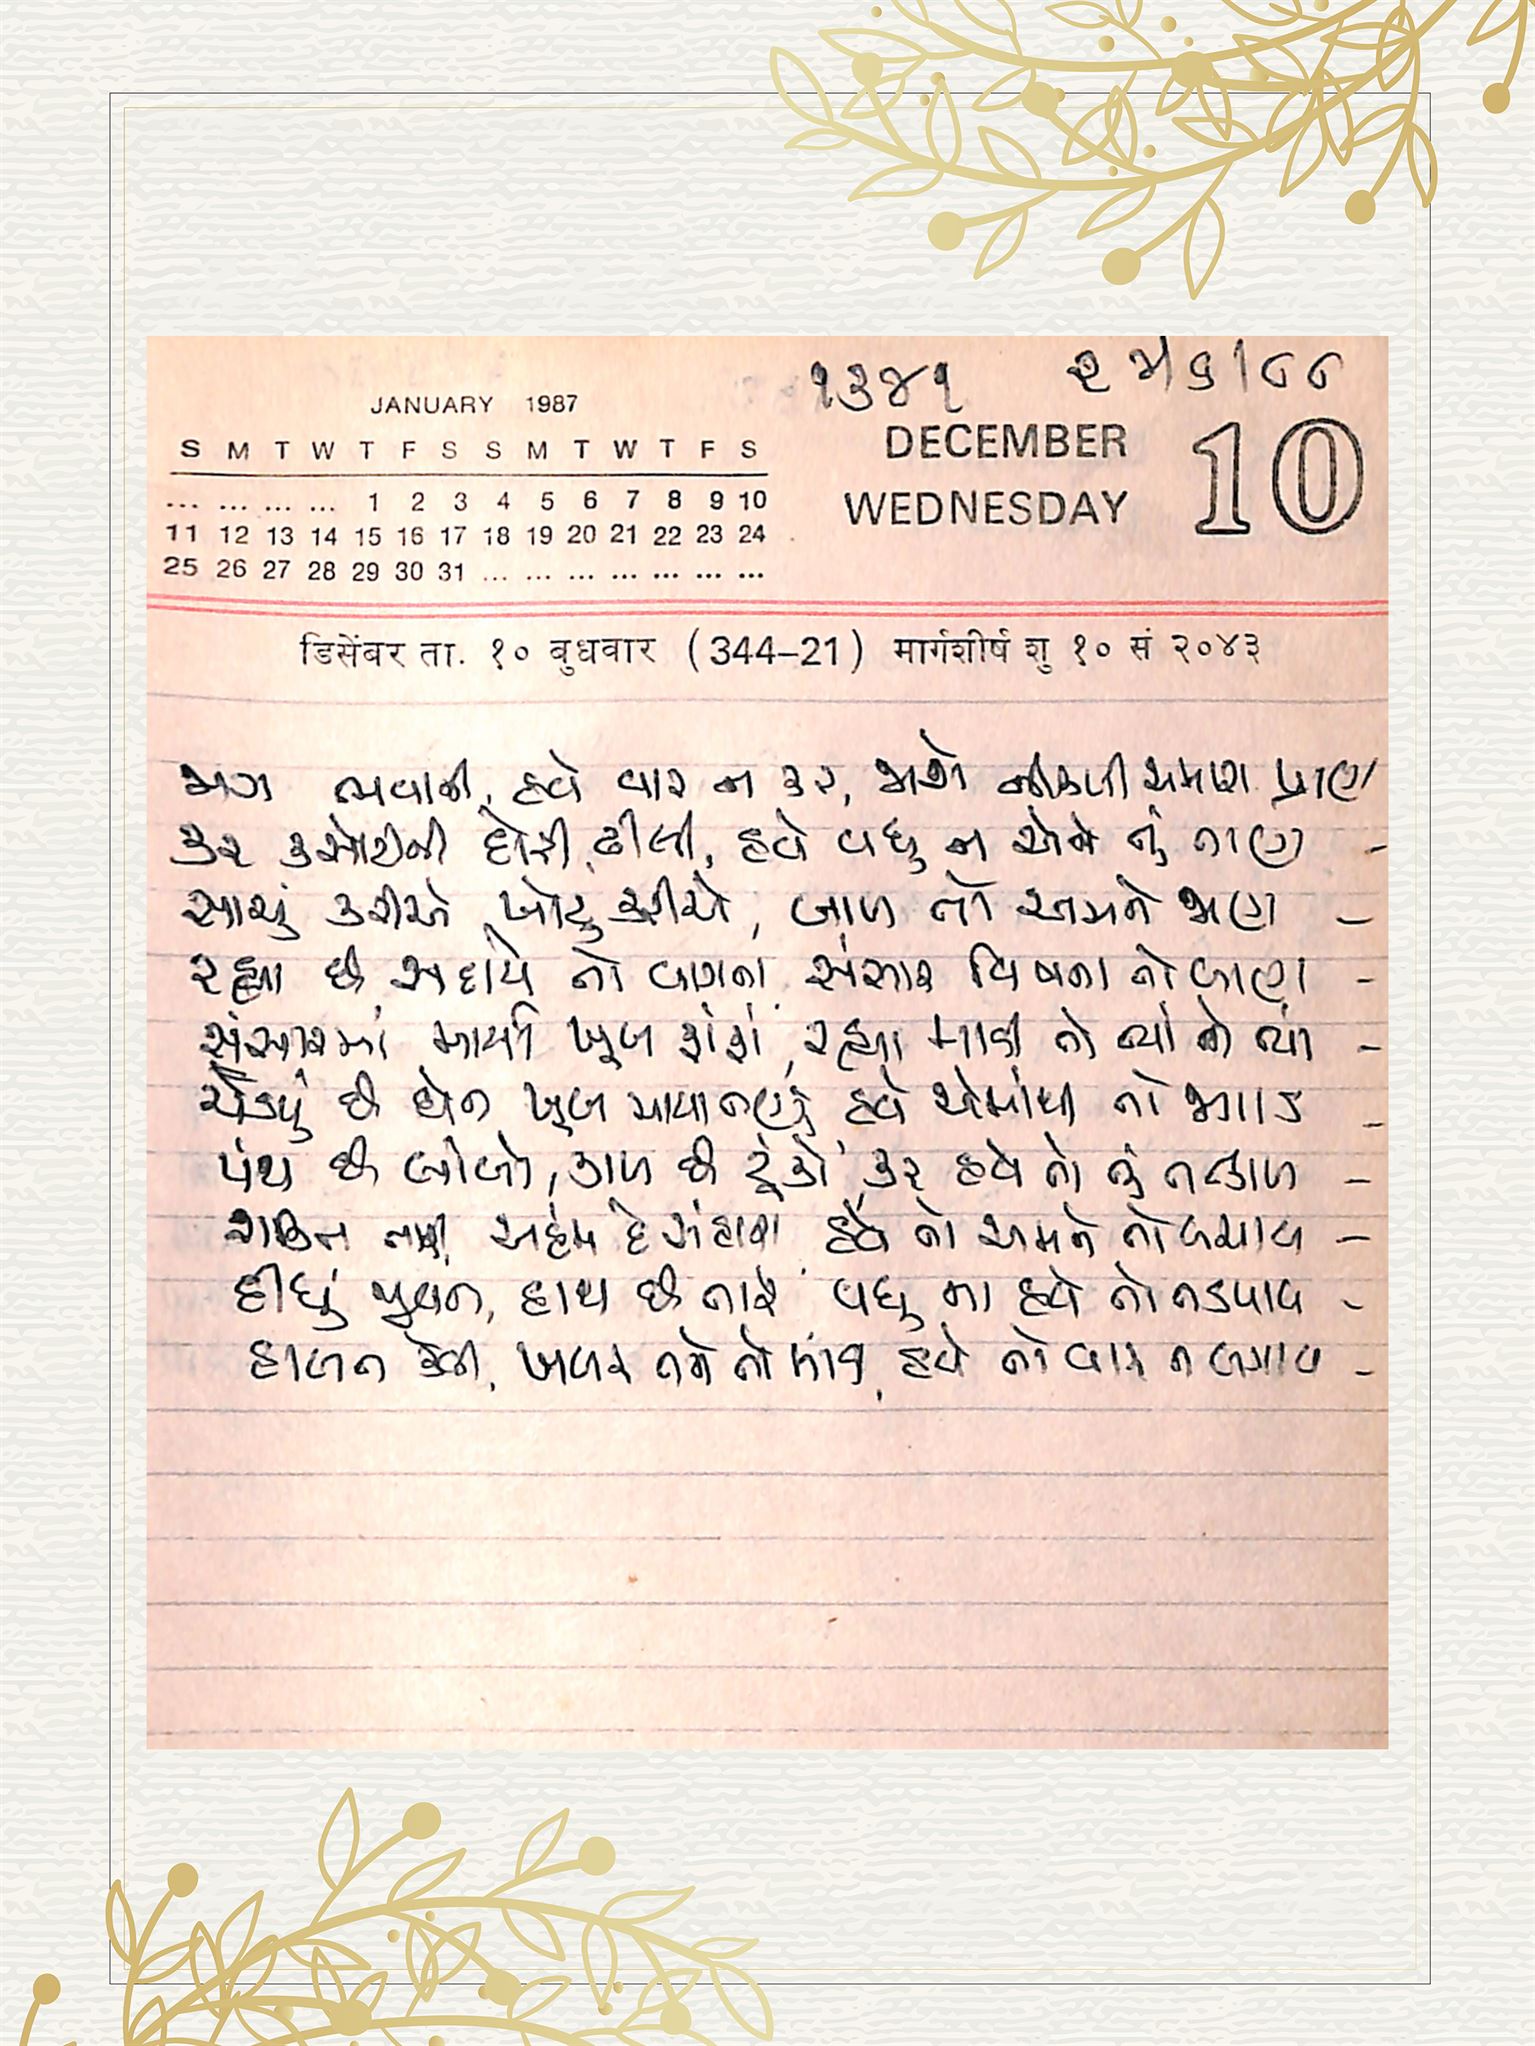 ૧૩૪૧ ૨ મે ૬/૮૮
JANUARY 1987
DECEMBER 10
S M T W T F S S M T W T F S
WEDNESDAY
... ... ... ... 1 2 3 4 5 6 7 8 9 10
11 12 13 14 15 16 17 18 19 20 21 22 23 24
25 26 27 28 29 30 31 ... ... ... ... ... ... ...
डिसेंबर ता. १० बुधवार (344-21) मार्गशीर्ष शु १० सं २०४३
જાગ ભવાની, હવે વાર ન કર, જાશે નીકળી અમારા પ્રાણ
કર કસોટીની દોરી ઢીલી, હવે વધુ ન એને તું તાણ -
સાચું કરીએ, ખોટું કરીએ, બાળ તો અમને જાણ -
રહ્યા છે સદાયે તો વાગતાં સંસાર વિષના તો બાણ -
સંસારમાં માર્યા ખૂબ ફાંફાં, રહ્યા માડી તો ત્યાં ને ત્યાં -
ચડયું છે ઘેન ખૂબ માયાતણું હવે એમાંથી તો જગાડ -
પંથ છે લાંબો, કાળ છે ટૂંકો, કર હવે તો તું તત્કાળ -
શક્તિ તારી, અહં દે સંહારી હવે તો અમને તો બચાવ -
દીધું જીવન, હાથ છે તારે વધુ ના હવે તો તડપાવ -
હાલત કેવી, ખબર તને તો માત, હવે તો વાર ન લગાવ -